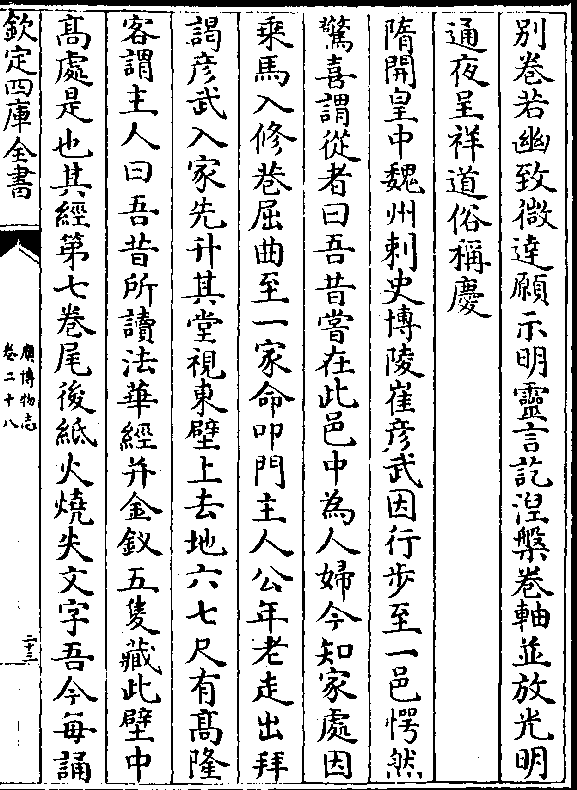 別卷若幽致微達願示明靈言訖涅槃卷軸並放光明
通夜呈祥道俗稱慶
隋開皇中魏州刺史博陵崔彦武因行步至一邑愕然
驚喜謂從者曰吾昔嘗在此邑中為人婦今知家處因
乗馬入修巷屈曲至一家命叩門主人公年老走出拜
謁彦武入家先升其堂視東壁上去地六七尺有髙隆
客謂主人曰吾昔所讀法華經并金釵五隻藏此壁中
髙處是也其經第七卷尾後紙火燒失文字吾今每誦
欽定四庫全書
廣博物志
卷二十八
二十三